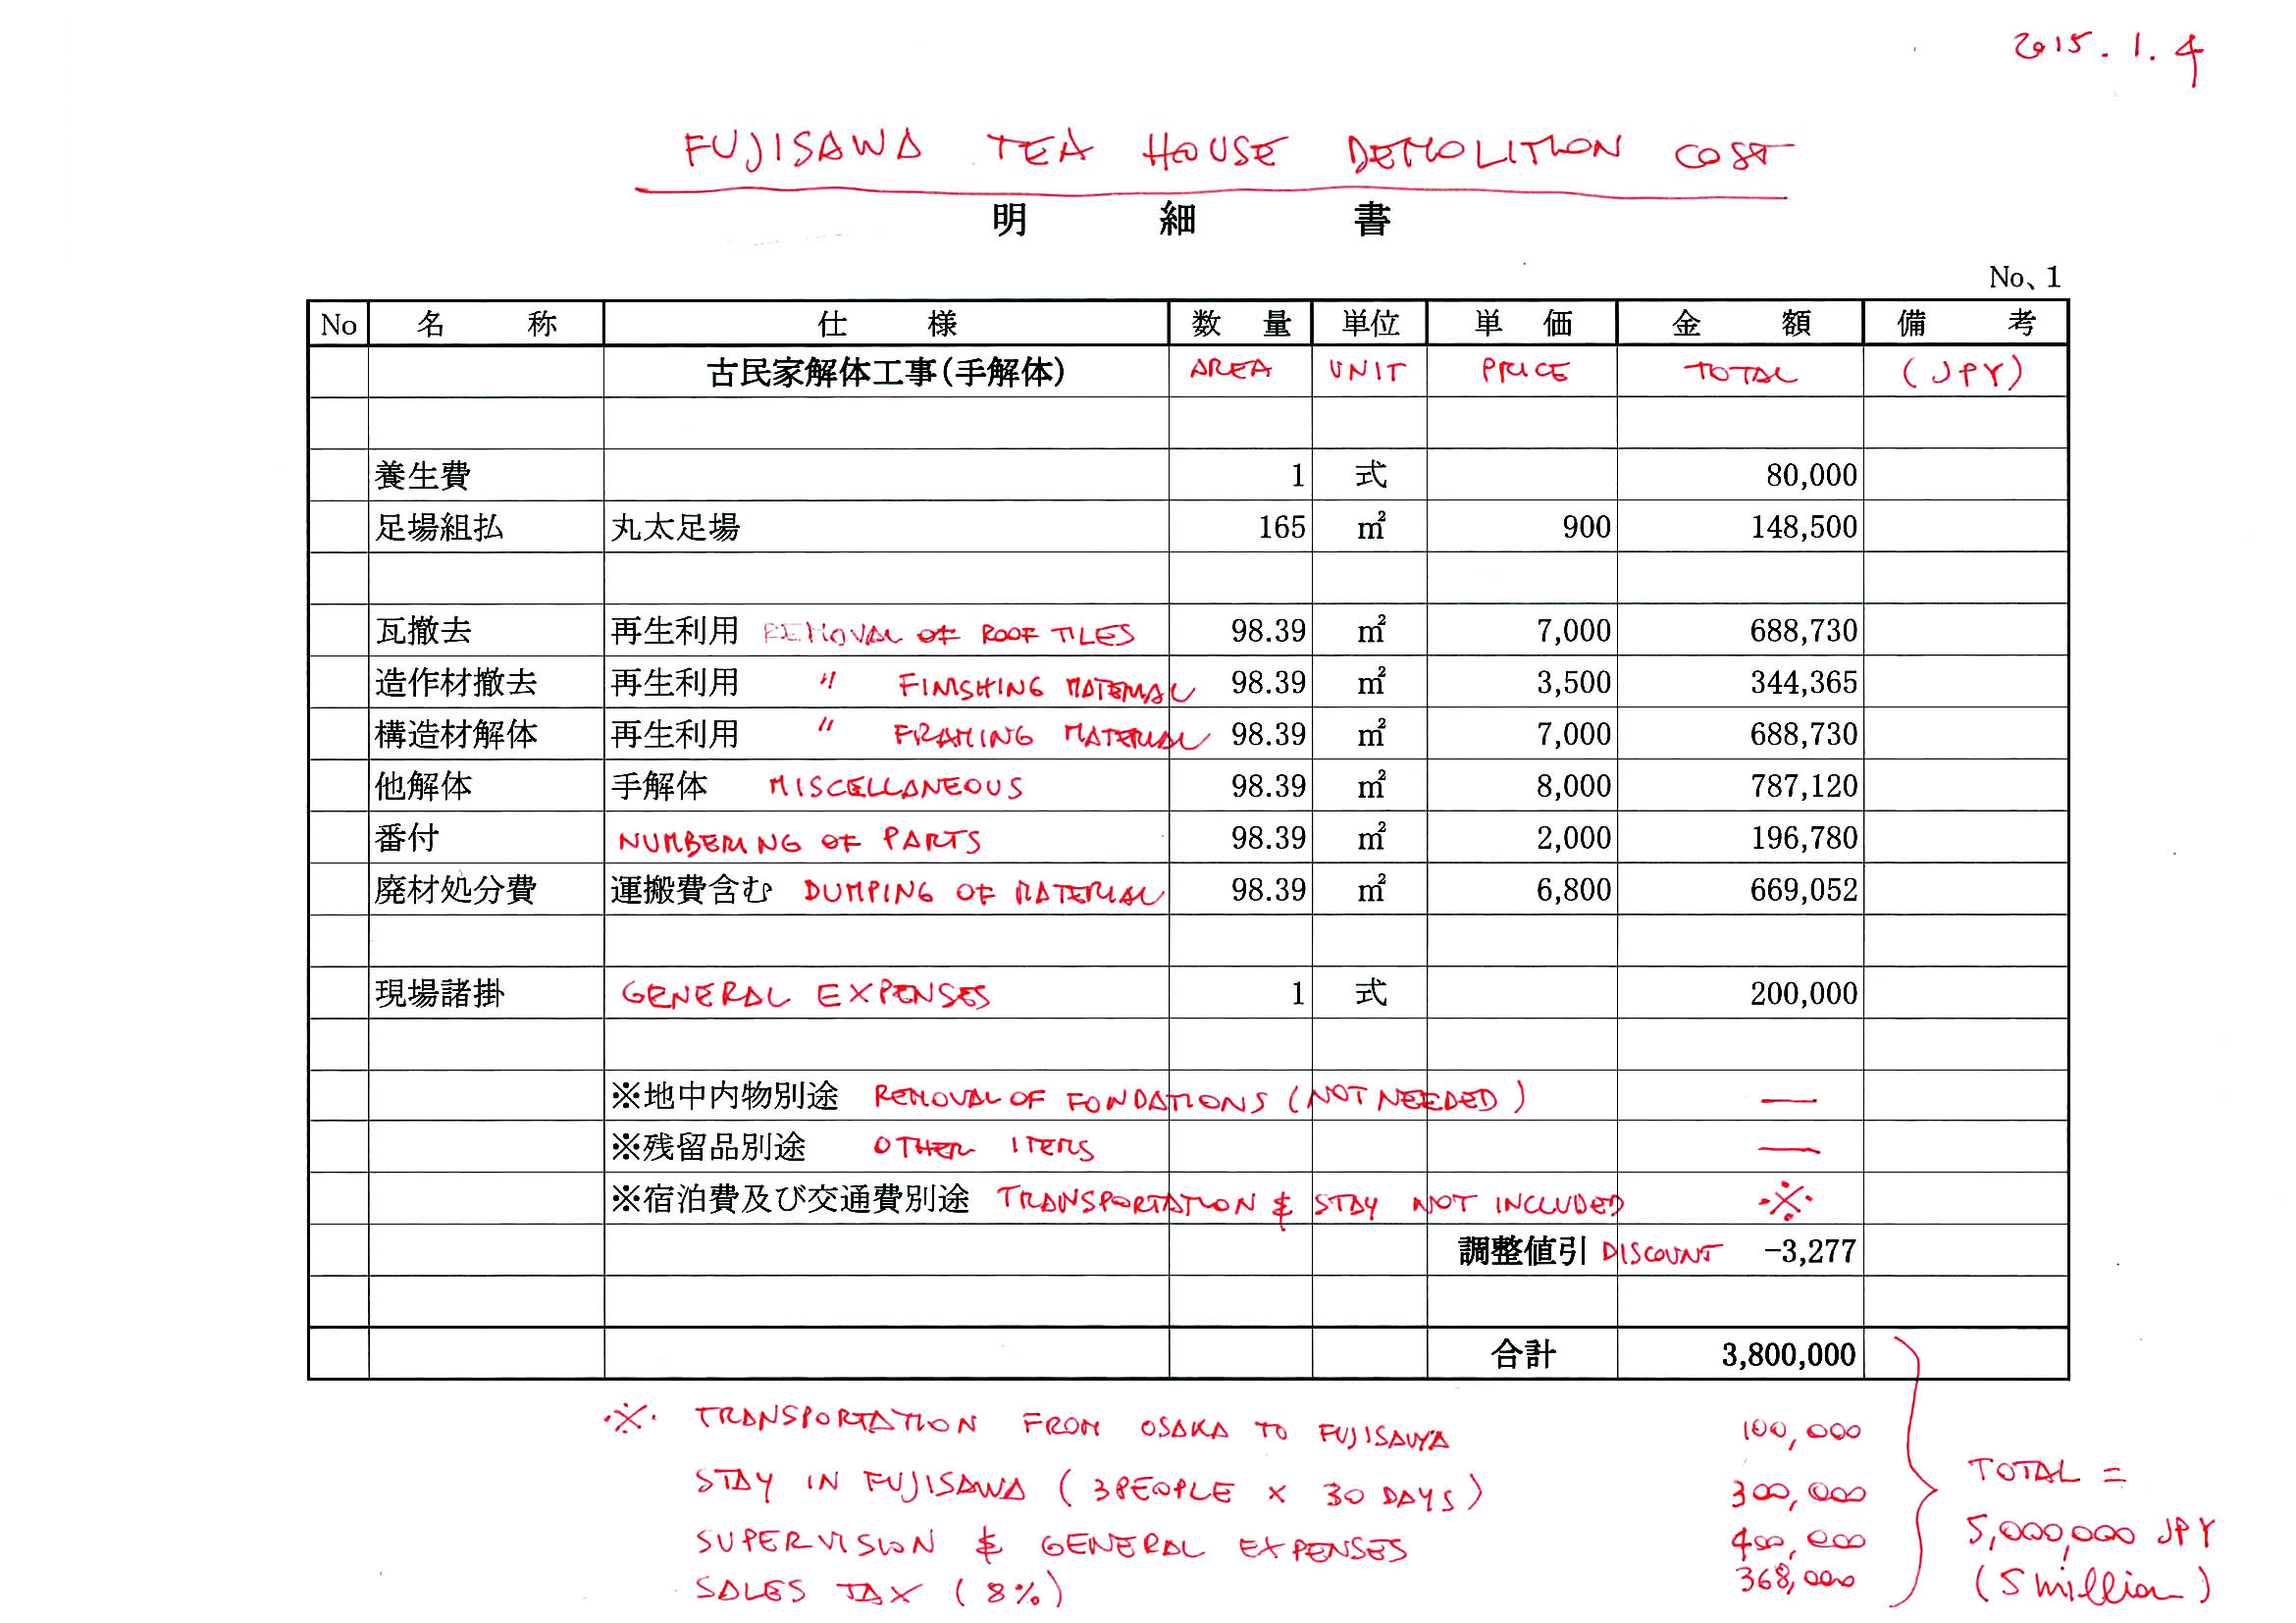 2015.1.4
FUJISAWA TEA HOUSE DEMOLITION COST
明細書
No、1
No 名称 仕様 数量 単位 単価 金額 備考
古民家解体工事(手解体) AREA UNIT PRICE TOTAL (JPY)
養生費 1 式 80,000
足場組払 丸太足場 165 ㎡ 900 148,500
瓦撤去 再生利用 REMOVAL OF ROOF TILES 98.39 ㎡ 7,000 688,730
造作材撤去 再生利用 〃 FINISHING MATERIAL 98.39 ㎡ 3,500 344,365
構造材解体 再生利用 〃 FRAMING MATERIAL 98.39 ㎡ 7,000 688,730
他解体 手解体 MISCELLANEOUS 98.39 ㎡ 8,000 787,120
番付 NUMBERING OF PARTS 98.39 ㎡ 2,000 196,780
廃材処分費 運搬費含む DUMPING OF MATERIAL 98.39 ㎡ 6,800 669,052
現場諸掛 GENERAL EXPENSES 1 式 200,000
※地中内物別途 REMOVAL OF FONDATIONS (NOT NEEDED) —
※残留品別途 OTHER ITEMS —
※宿泊費及び交通費別途 TRANSPORTATION & STAY NOT INCLUDED ※
調整値引 DISCOUNT -3,277
合計 3,800,000
※ TRANSPORTATION FROM OSAKA TO FUJISAWA 100,000
STAY IN FUJISAWA (3 PEOPLE × 30 DAYS) 300,000
SUPERVISION & GENERAL EXPENSES 400,000
SALES TAX (8%) 368,000
TOTAL =
5,000,000 JPY
(5 million)